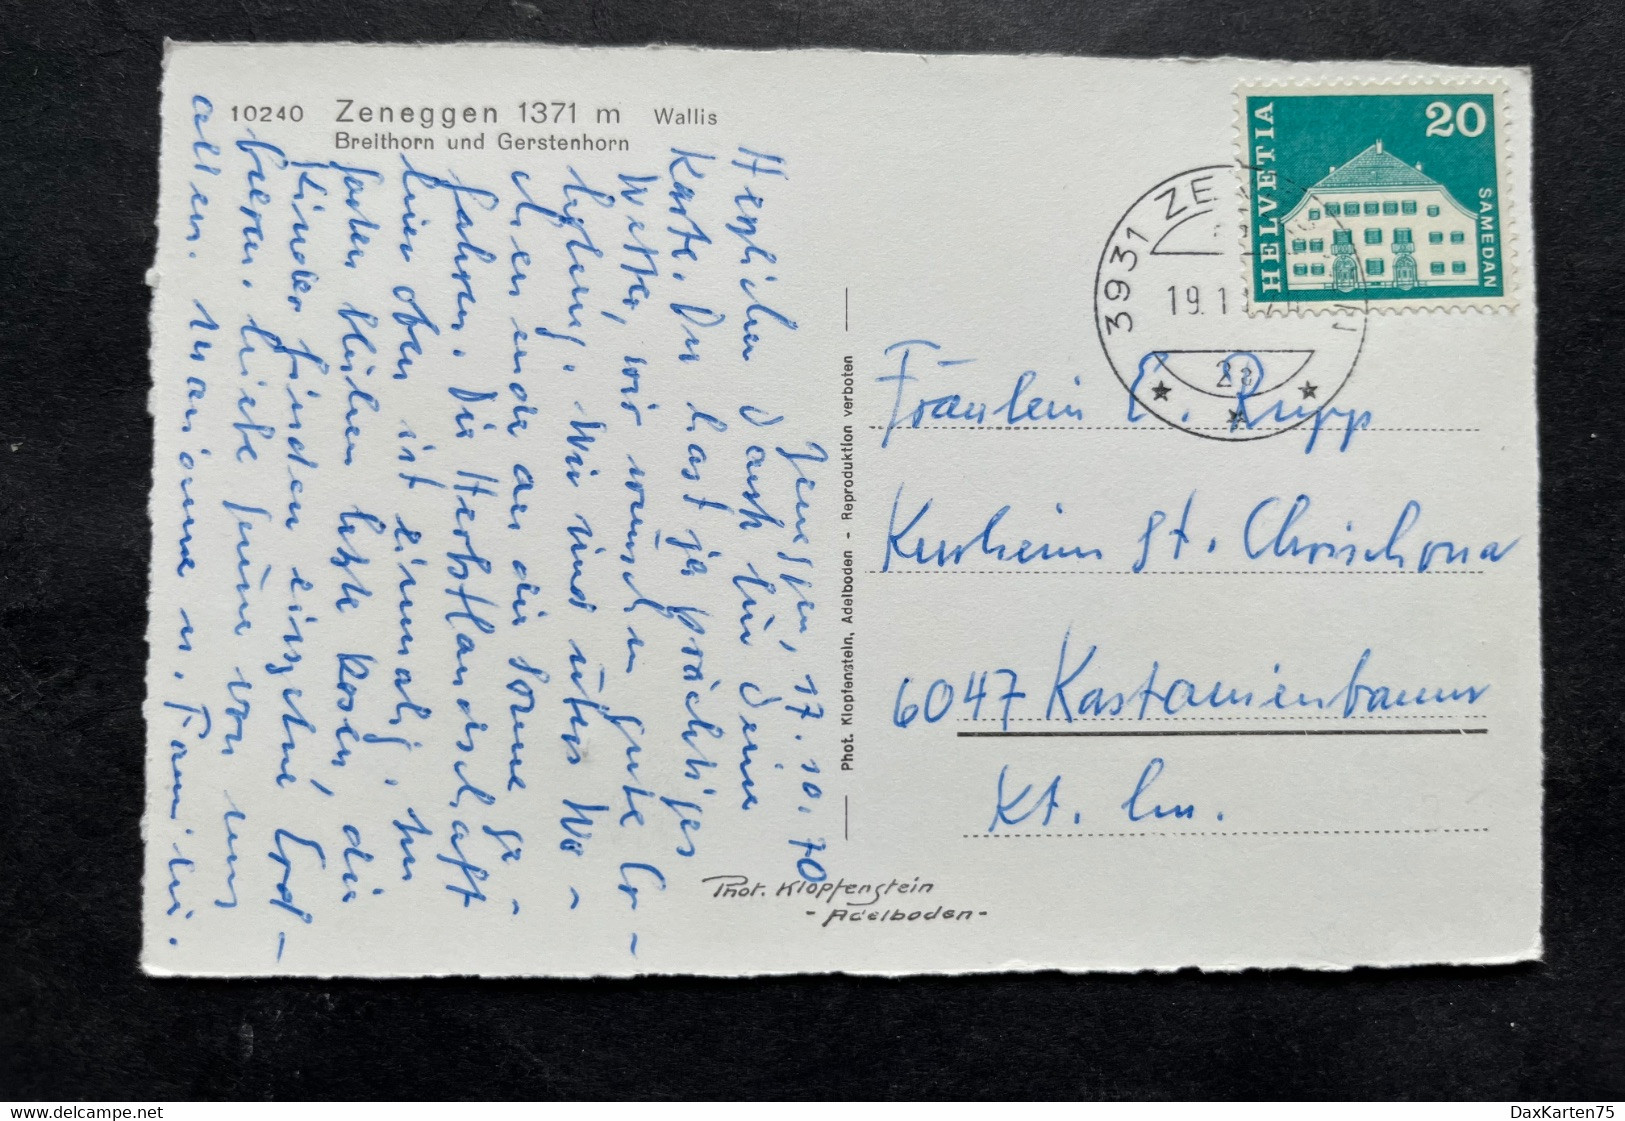 10240 Zeneggen 1371 m Wallis
Breithorn und Gerstenhorn
Zeneggen, 17. 10. 70
Herzlichen Dank für Deine
Karte. Du hast ja prächtiges
Wetter, wir wünschen gute Er-
holung. Wir sind übers Wo-
chenende an die Sonne ge-
fahren. Die Herbstlandschaft
hier oben ist einmalig. Im
Garten blühen letzte Rosen, die
Kinder finden einzelne Erd-
beeren. Liebe Grüsse von uns
allen. Marianne u. Familie.
Phot. Klopfenstein, Adelboden - Reproduktion verboten
Phot. Klopfenstein
- Adelboden -
HELVETIA
20
SAMEDAN
3931 ZE
19.1
Fräulein E. Rupp
Kurheim St. Chrischona
6047 Kastanienbaum
Kt. Lu.
www.delcampe.net
DaxKarten75